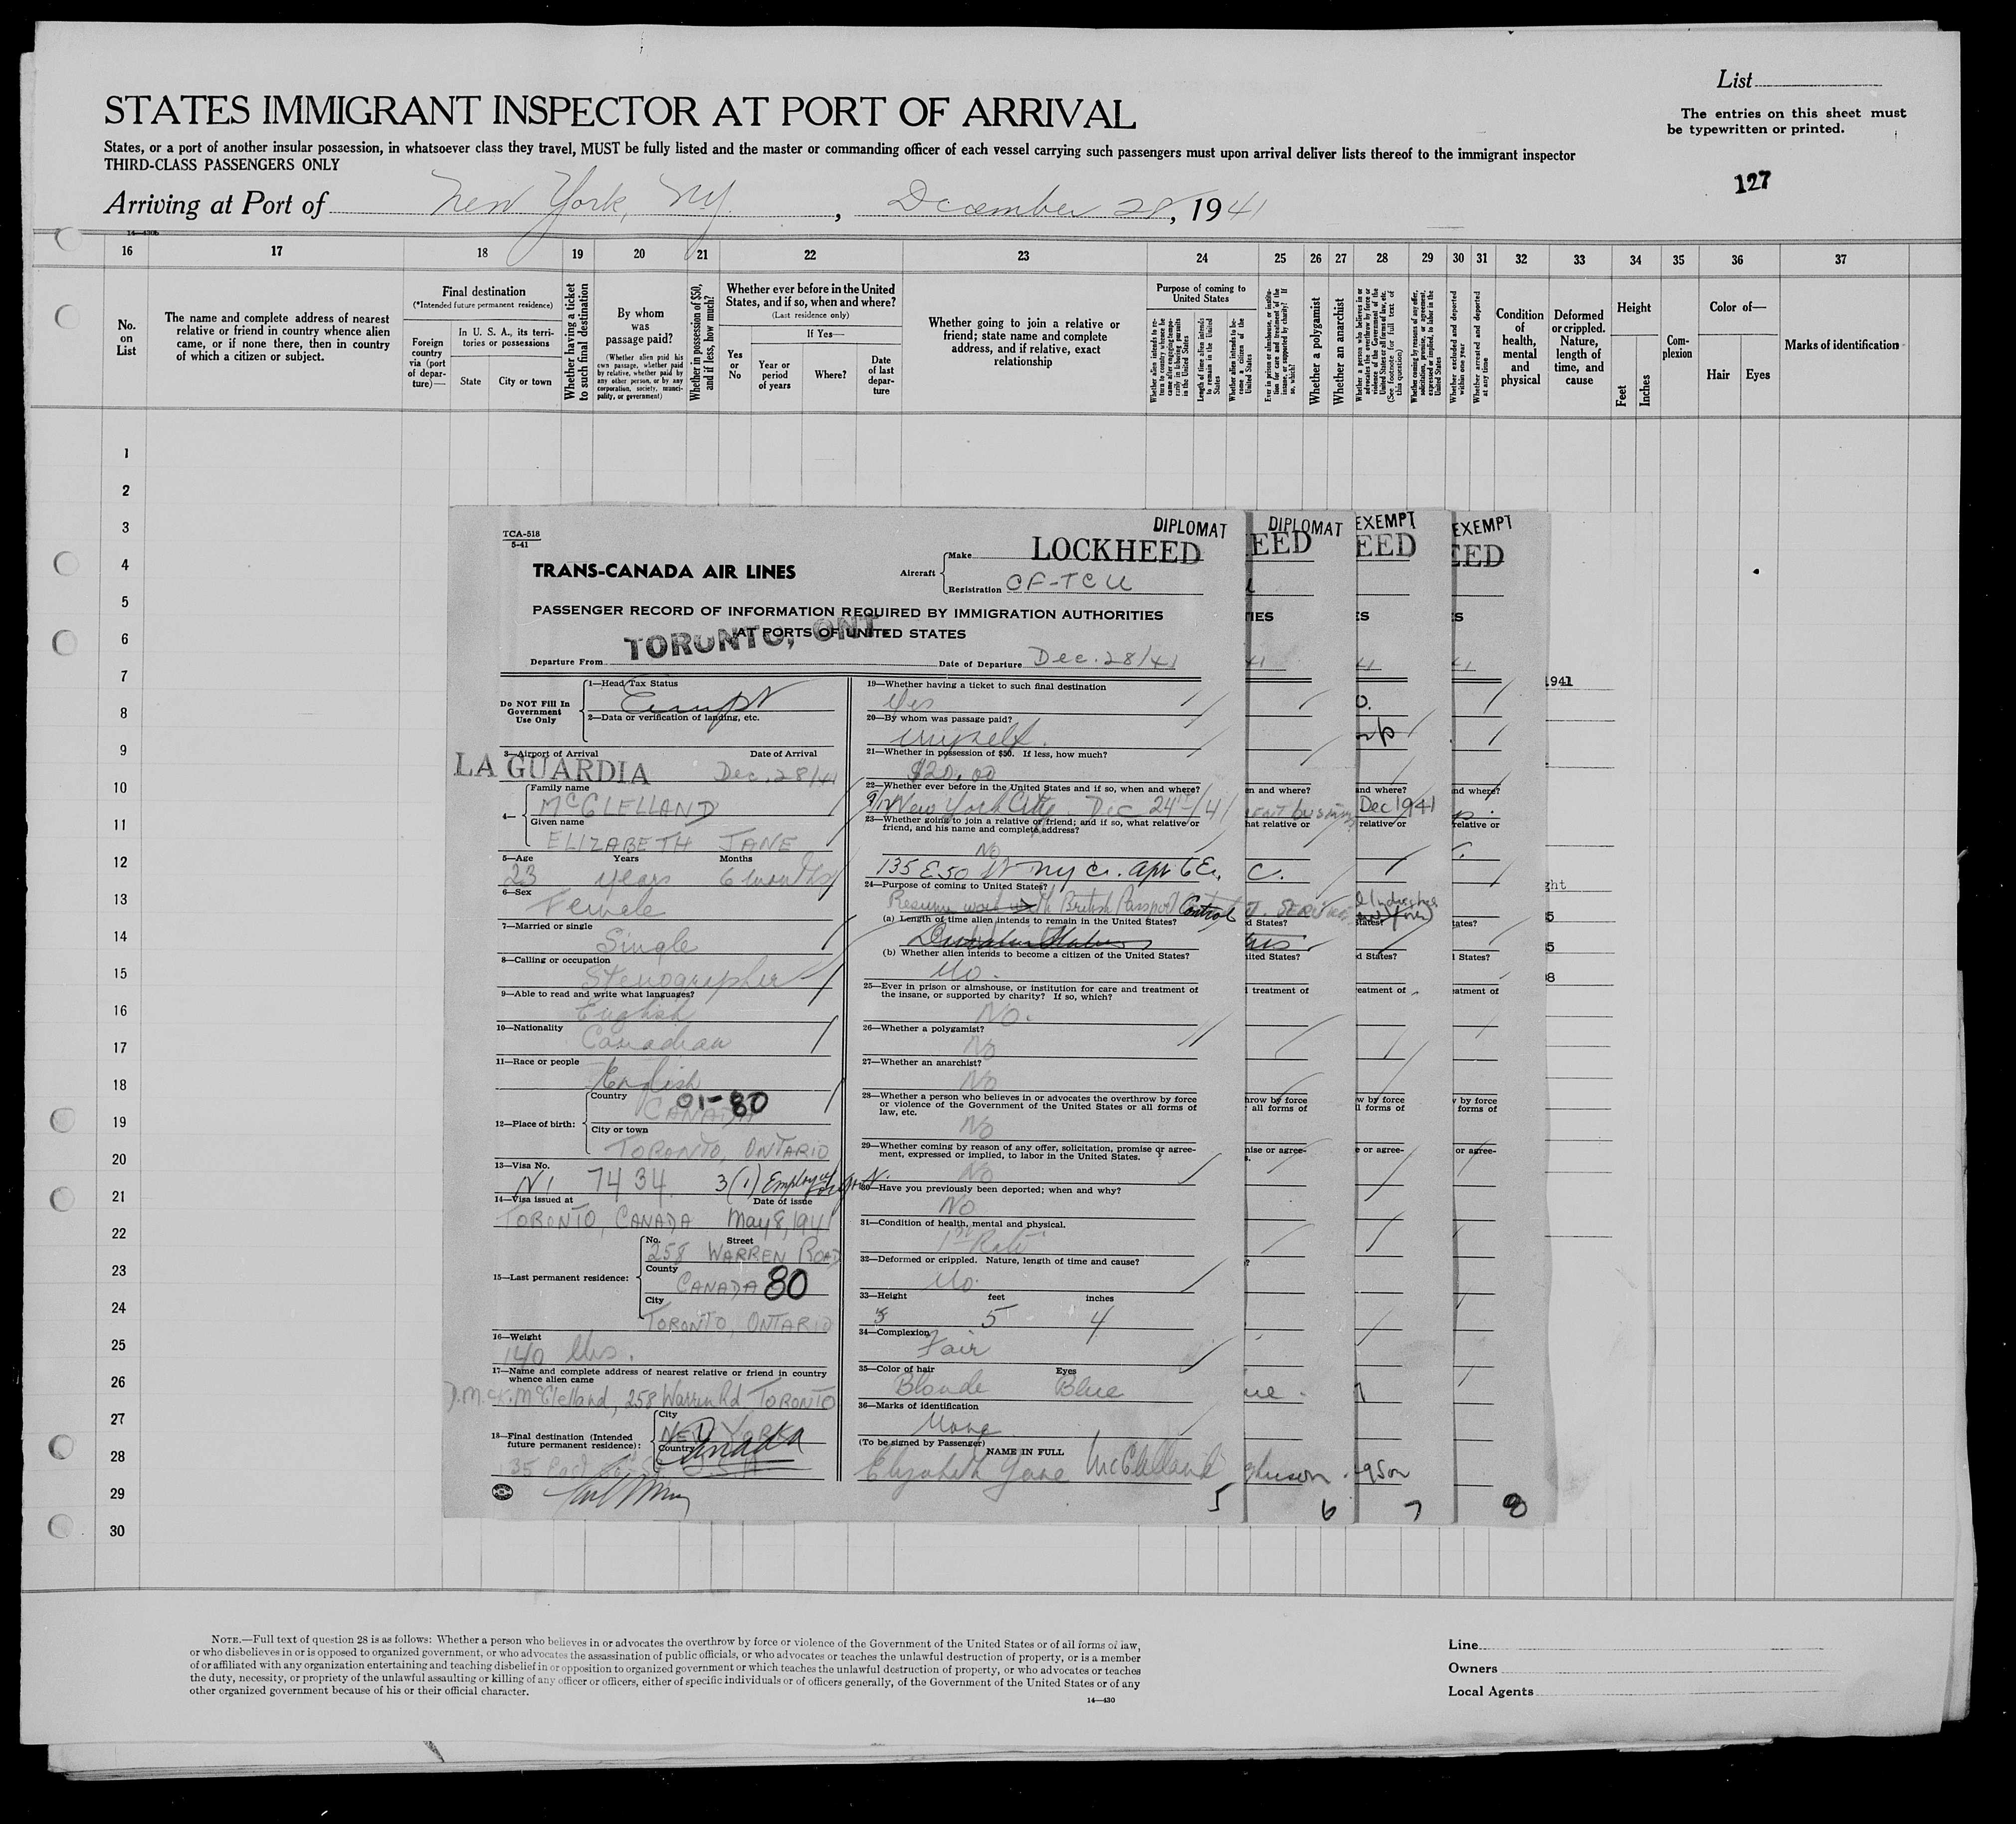 List
STATES IMMIGRANT INSPECTOR AT PORT OF ARRIVAL
The entries on this sheet must
be typewritten or printed.
States, or a port of another insular possession, in whatsoever class they travel, MUST be fully listed and the master or commanding officer of each vessel carrying such passengers must upon arrival deliver lists thereof to the immigrant inspector
THIRD-CLASS PASSENGERS ONLY
127
Arriving at Port of New York, NY. , December 28, 1941
14—430b
16 17 18 19 20 21 22 23 24 25 26 27 28 29 30 31 32 33 34 35 36 37
No. on List
The name and complete address of nearest
relative or friend in country whence alien
came, or if none there, then in country
of which a citizen or subject.
Final destination
(*Intended future permanent residence)
Foreign country via (port of departure)—
In U. S. A., its territories or possessions
State
City or town
Whether having a ticket to such final destination
By whom was passage paid?
(Whether alien paid his own passage, whether paid by relative, whether paid by any other person, or by any corporation, society, municipality, or government)
Whether in possession of $50, and if less, how much?
Whether ever before in the United
States, and if so, when and where?
(Last residence only)
Yes or No
If Yes—
Year or period of years
Where?
Date of last departure
Whether going to join a relative or
friend; state name and complete
address, and if relative, exact
relationship
Purpose of coming to United States
Length of time alien intends to remain in the United States
Whether alien intends to become a citizen of the United States
Whether a polygamist
Whether an anarchist
Whether excluded and deported within one year
Whether arrested and deported at any time
Condition of health, mental and physical
Deformed or crippled. Nature, length of time, and cause
Height
Feet
Inches
Complexion
Color of—
Hair
Eyes
Marks of identification
1
2
3
4
5
6
7
8
9
10
11
12
13
14
15
16
17
18
19
20
21
22
23
24
25
26
27
28
29
30
TCA-518
5-41
DIPLOMAT
TRANS-CANADA AIR LINES
Aircraft
Make LOCKHEED
Registration CF-TCU
PASSENGER RECORD OF INFORMATION REQUIRED BY IMMIGRATION AUTHORITIES
AT PORTS OF UNITED STATES
Departure From TORONTO, ONT.
Date of Departure Dec. 28/41
Do NOT Fill In
Government
Use Only
1—Head Tax Status
Exempt
2—Data or verification of landing, etc.
3—Airport of Arrival Date of Arrival
LA GUARDIA Dec. 28/41
4—
Family name
McCLELLAND
Given name
ELIZABETH JANE
5—Age Years Months
23 years 6 months
6—Sex
Female
7—Married or single
Single
8—Calling or occupation
Stenographer
9—Able to read and write what languages?
English
10—Nationality
Canadian
11—Race or people
English
12—Place of birth:
Country
CANADA 01-80
City or town
TORONTO, ONTARIO
13—Visa No.
7434 3(1) Employee
14—Visa issued at Date of issue
TORONTO, CANADA May 8, 1941
15—Last permanent residence:
No. Street
258 WARREN ROAD
County
CANADA 80
City
TORONTO, ONTARIO
16—Weight
140 lbs.
17—Name and complete address of nearest relative or friend in country
whence alien came
McClelland, 258 Warren Rd. TORONTO
18—Final destination (Intended
future permanent residence):
City
NEW YORK
Country
Canada
USA
19—Whether having a ticket to such final destination
Yes
20—By whom was passage paid?
Myself.
21—Whether in possession of $50. If less, how much?
$20.00
22—Whether ever before in the United States and if so, when and where?
New York City Dec 24th/41
23—Whether going to join a relative or friend; and if so, what relative or
friend, and his name and complete address?
No
135 E 50 St NYC. apt 6E.
24—Purpose of coming to United States?
Resume work with British Passport Control
(a) Length of time alien intends to remain in the United States?
(b) Whether alien intends to become a citizen of the United States?
No.
25—Ever in prison or almshouse, or institution for care and treatment of
the insane, or supported by charity? If so, which?
No.
26—Whether a polygamist?
No
27—Whether an anarchist?
No
28—Whether a person who believes in or advocates the overthrow by force
or violence of the Government of the United States or all forms of
law, etc.
No
29—Whether coming by reason of any offer, solicitation, promise or agree-
ment, expressed or implied, to labor in the United States.
No
30—Have you previously been deported; when and why?
No
31—Condition of health, mental and physical.
1st Rate
32—Deformed or crippled. Nature, length of time and cause?
No.
33—Height feet inches
5 4
34—Complexion
Fair
35—Color of hair Eyes
Blonde Blue
36—Marks of identification
None
(To be signed by Passenger)
NAME IN FULL
Elizabeth Jane McClelland
5
DIPLOMAT
EED
6
EXEMPT
EED
Dec 1941
7
EXEMPT
EED
8
1941
NOTE.—Full text of question 28 is as follows: Whether a person who believes in or advocates the overthrow by force or violence of the Government of the United States or of all forms of law,
or who disbelieves in or is opposed to organized government, or who advocates the assassination of public officials, or who advocates or teaches the unlawful destruction of property, or is a member
of or affiliated with any organization entertaining and teaching disbelief in or opposition to organized government or which teaches the unlawful destruction of property, or who advocates or teaches
the duty, necessity, or propriety of the unlawful assaulting or killing of any officer or officers, either of specific individuals or of officers generally, of the Government of the United States or of any
other organized government because of his or their official character.
14—430
Line
Owners
Local Agents